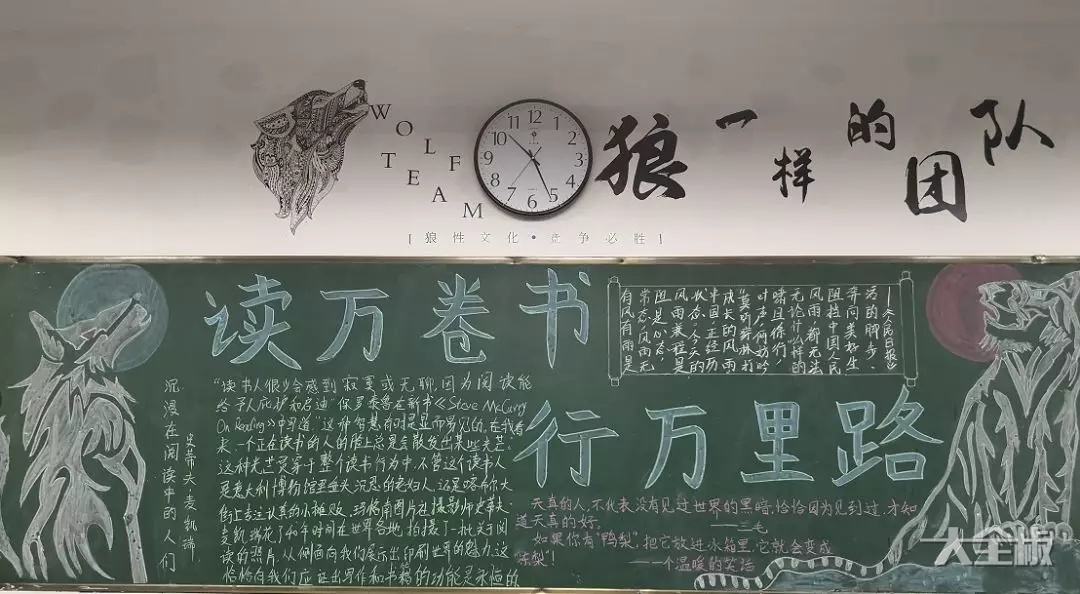 WOLF
TEAM
狼一样的团队
[狼性文化·竞争必胜]
12
1
2
3
4
5
6
7
8
9
10
11
读万卷书
行万里路
沉浸在阅读中的人们
史蒂夫麦凯瑞
“读书人很少会感到寂寞或无聊,因为阅读能
给予人庇护和启迪”保罗·索鲁在新书《Steve McCurry
On Reading》中写道,“这种智慧有时是显而易见的,在我看
来,一个正在读书的人的脸上总是会散发出某些光芒”
这种光芒贯穿于整个读书行为中,不管这个读书人
是意大利博物馆里垂头沉思的老妇人,还是喀布尔大
街上专注认真的小摊贩,玛格南图片社摄影师史蒂夫·
麦凯瑞花了40年时间在世界各地拍摄了一批关于阅
读的照片,从侧面向我们展示出印刷世界的魅力,这
恰恰向我们应证出写作和书籍的功能是永恒的
有风有雨是
常态,风雨无
阻是心态,
风雨兼程是
状态。今天的
中国,正经历
成长的风雨
“莫听穿林打
叶声,何妨吟
啸且徐行”
无论什么样的
风雨,都无法
阻挡中国人民
奔向美好生
活的脚步。
——《人民日报》
天真的人,不代表没有见过世界的黑暗,恰恰因为见到过,才知
道天真的好,
——三毛
如果你有“鸭梨”,把它放进冰箱里,它就会变成
“冻梨”!
——一个温暖的笑话
大全板